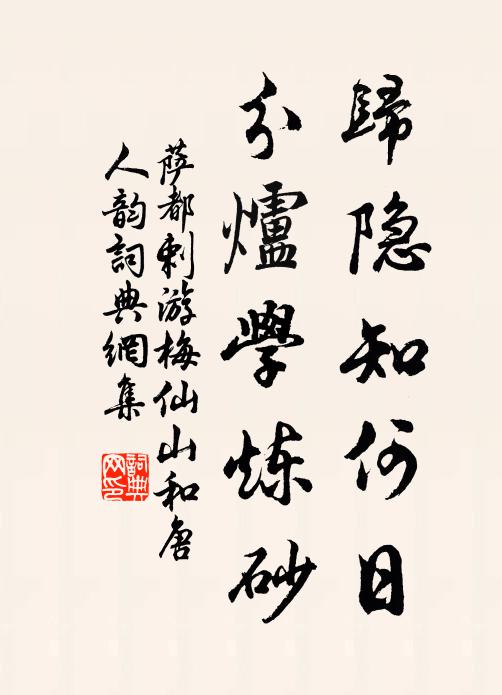 歸隐知何日
分爐學炼砂
萨都剌游梅仙山和唐
人韵詞典網集
詞典
网印